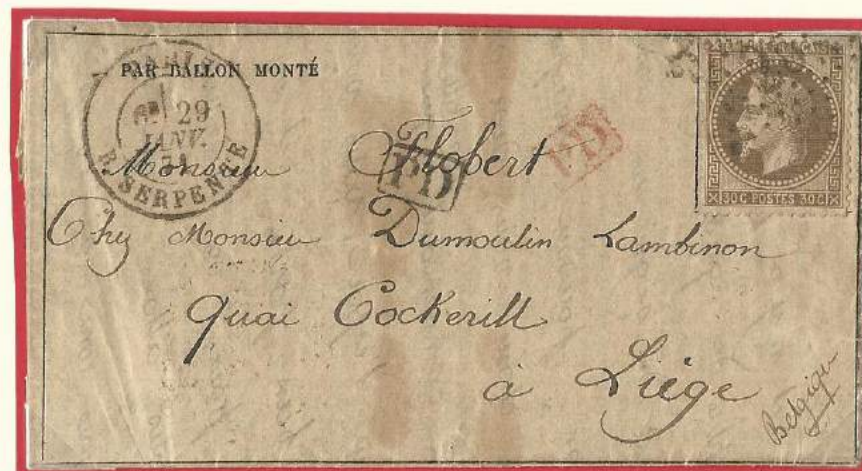 PAR BALLON MONTÉ
29
JANV.
71
R. SERPENTE
PD
PD
30 C POSTES 30 C
Monsieur Flobert
Chez Monsieur Dumoulin Lambinon
Quai Cockerill
à Liège
Belgique